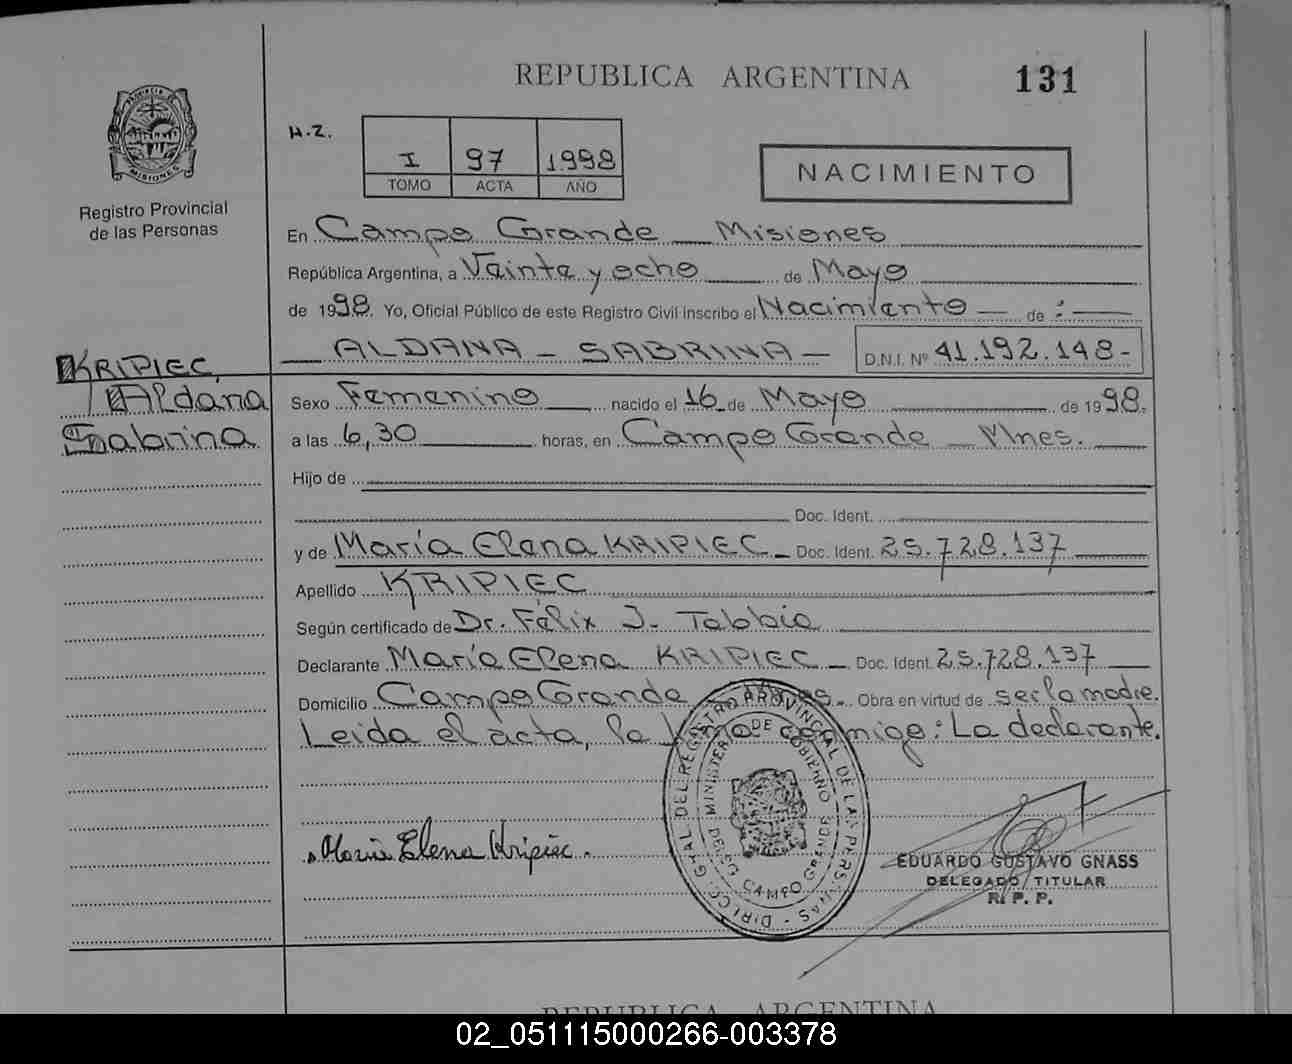 REPUBLICA ARGENTINA 131
H.Z.
I 97 1998
TOMO ACTA AÑO
NACIMIENTO
PROVINCIA DE MISIONES
Registro Provincial
de las Personas
En Campo Grande Misiones
República Argentina, a Veinte y ocho de Mayo
de 1998. Yo, Oficial Público de este Registro Civil inscribo el Nacimiento de :
ALDANA - SABRINA - D.N.I. Nº 41.192.148-
KRIPIEC,
Aldana
Sabrina
Sexo Femenino nacido el 16 de Mayo de 1998.
a las 6,30 horas, en Campo Grande Mnes.
Hijo de
Doc. Ident.
y de María Elena KRIPIEC Doc. Ident. 25.728.137
Apellido KRIPIEC
Según certificado de Dr. Félix J. Tabbia
Declarante María Elena KRIPIEC Doc. Ident. 25.728.137
Domicilio Campo Grande Obra en virtud de ser la madre.
Leida el acta, la conmigo: La declarante.
DIREC. GRAL. DEL REGISTRO PROVINCIAL DE LAS PERSONAS
MINISTERIO DE GOBIERNO
DELEG. CAMPO GRANDE
María Elena Kripiec.
EDUARDO GUSTAVO GNASS
DELEGADO TITULAR
R. P. P.
REPUBLICA ARGENTINA
02_051115000266-003378